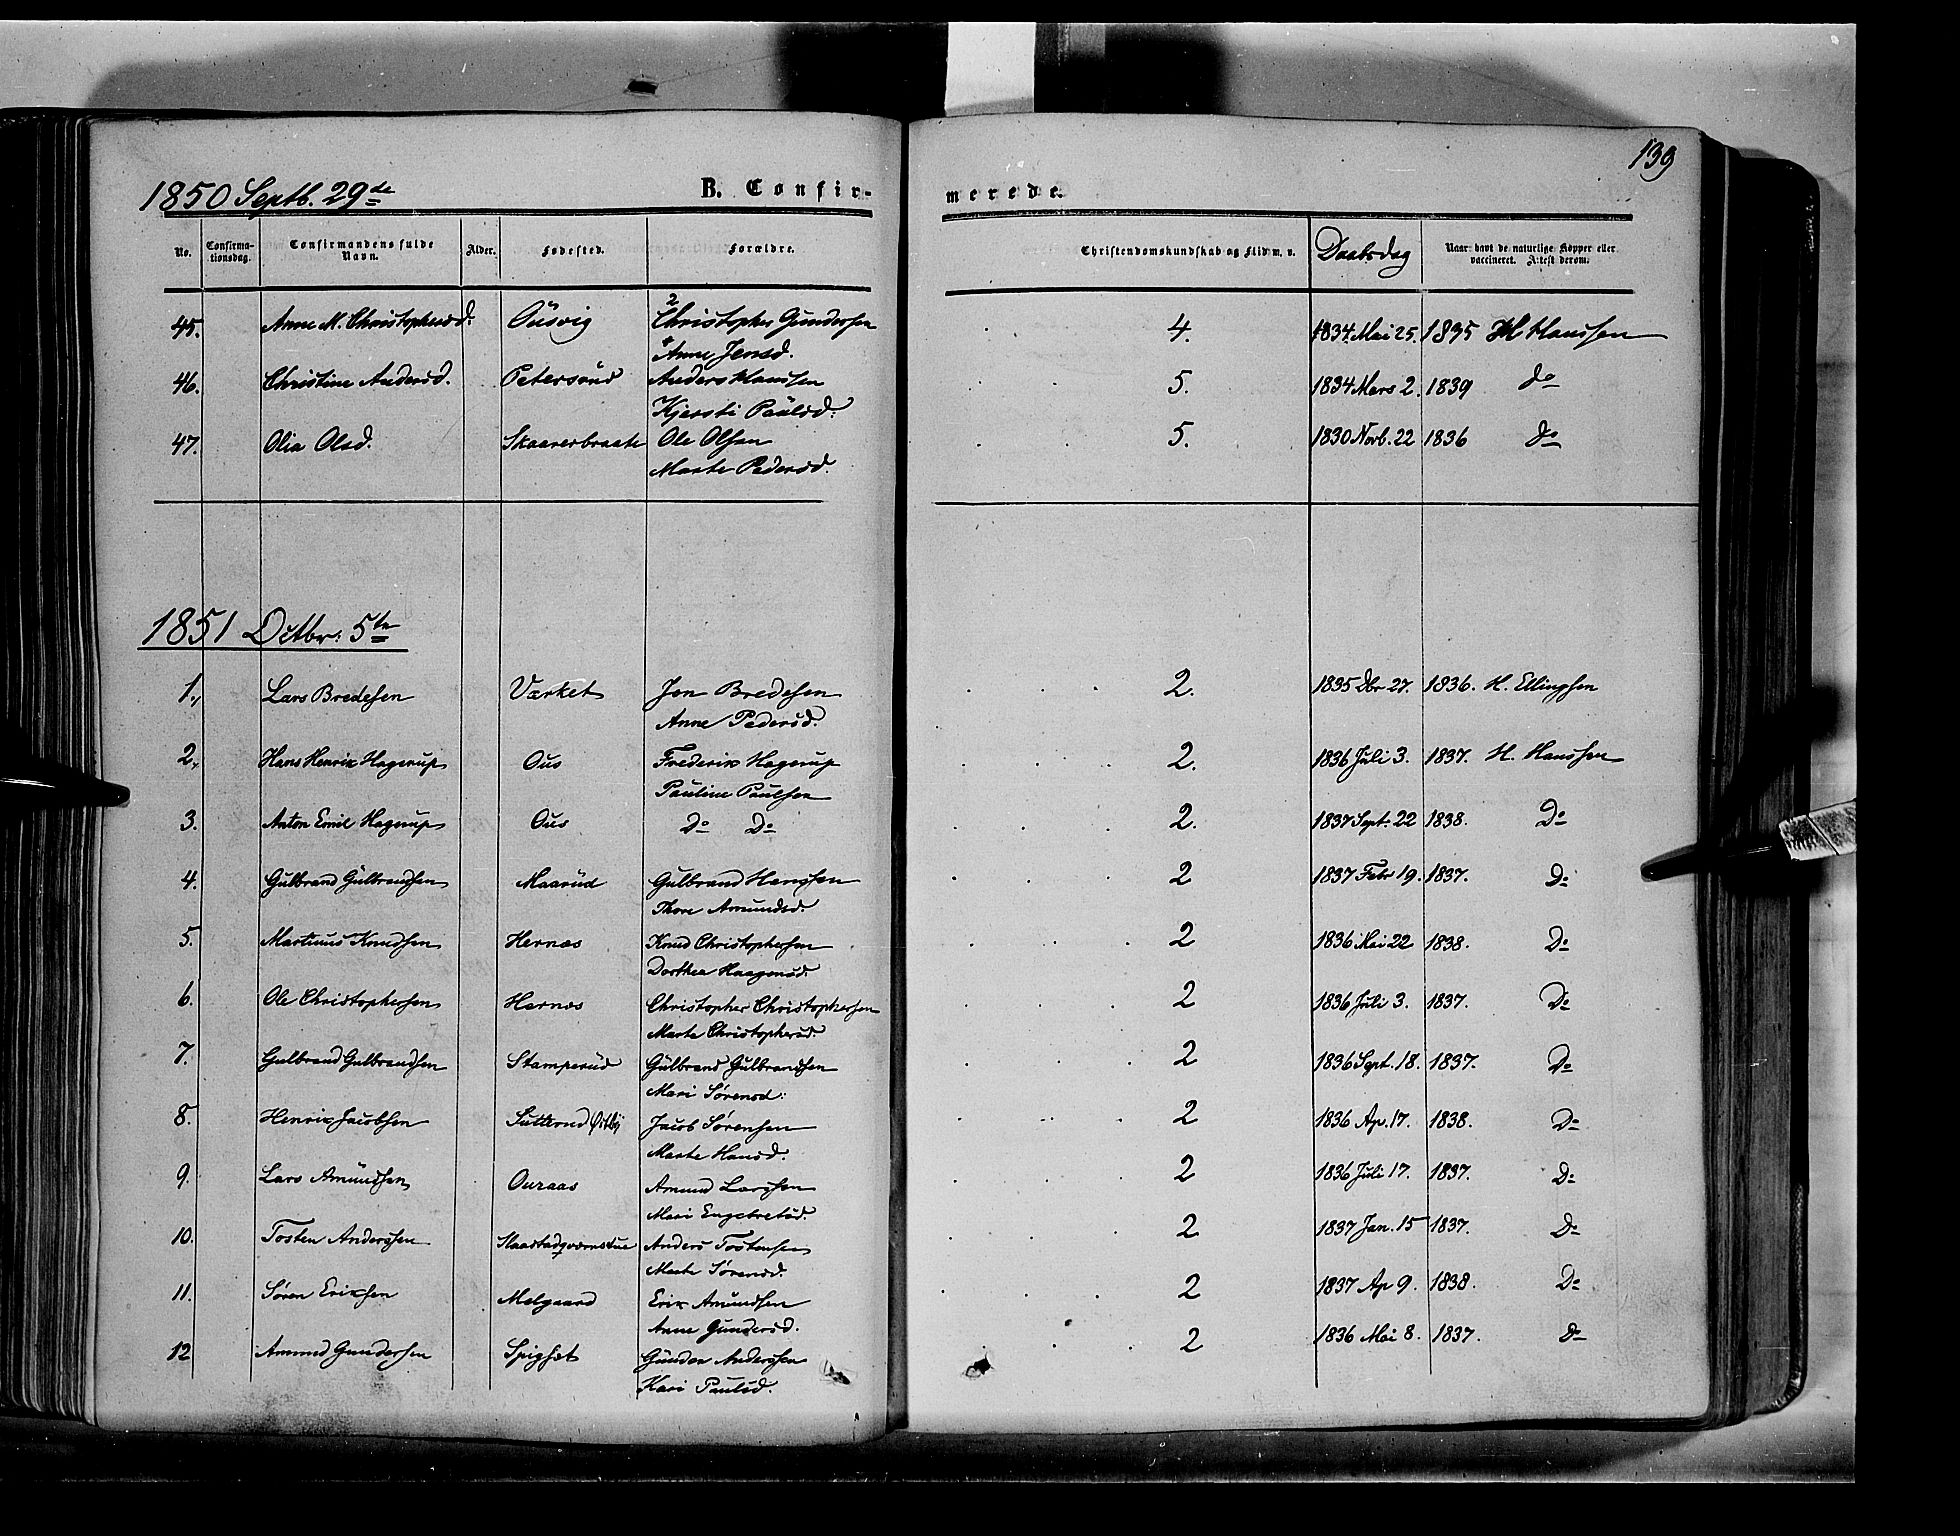 139
1850 Septb. 29de B. Confir- merede.
No. Confirma-tionsdag. Confirmandens fulde Navn. Alder. Fødested. Forældre. Christendomskundskab og Flid m. v. Daabsdag Naar havt de naturlige Kopper eller vaccineret. Attest derom.
45. Anne M. Christophersd: Ousvig 2 Christopher Gundersen 4. 1834 Mai 25. 1835 H Hanssen
Anne Jensd.
46. Christine Andersd. Petersoud Anders Hanssen 5. 1834 Mars 2. 1839 do
Kjersti Paulsd:
47. Olia Olsd. Skaarerbraate Ole Olsen 5. 1830 Novb. 22 1836 do
Marte Pedersd.
1851 Octbr: 5te
1., Lars Bredesen Værket Jon Bredesen 2. 1835 Dbr 27. 1836. H. Ellingsen
Anne Pedersd.
2., Hans Henrik Hagerup Ous Frederik Hagerup 2. 1836 Juli 3. 1837. H. Hanssen
Pauline Paulsen
3. Anton Emil Hagerup Ous Do Do 2. 1837 Sept. 22 1838. Do
4. Gulbrand Gulbrandsen Maarud Gulbrand Hanssen 2 1837 Febr 19. 1837. Do
Thore Amundsd.
5. Martinus Knudsen Hernæs Knud Christophersen 2 1836 Mai 22 1838. Do
Dorthea Haagensd.
6. Ole Christophersen Hernæs Christopher Christophersen 2 1836 Juli 3. 1837. Do
Marte Christophersd.
7. Gulbrand Gulbrandsen Stamperud Gulbrand Gulbrandsen 2 1836 Sept. 18. 1837. Do
Mari Sørensd:
8. Henrik Jacobsen Sætterud Østby Jacob Sørensen 2 1836 Ap. 17. 1838. Do
Marte Hansd.
9. Lars Amundsen Ouraas Amund Larssen 2 1836 Juli 17. 1837. Do
Mari Engebretsd.
10. Tosten Anderssen Skaastadqværnstue Anders Tostensen 2 1837 Jan. 15 1837. Do
Marte Sørensd.
11. Søren Eriksen Melgaard Erik Amundsen 2 1837 Ap 9. 1838. Do
Anne Gundersd.
12 Amund Gundersen Spigset Gunder Anderssen 2 1836 Mai 8. 1837. Do
Kari Paulsd.